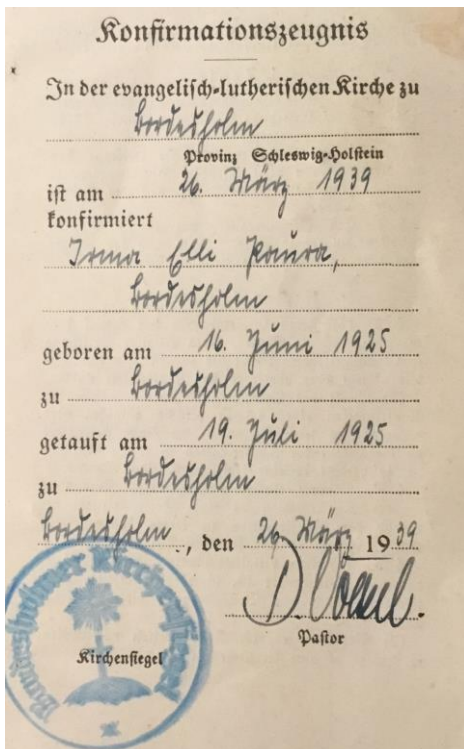 Konfirmationszeugnis
In der evangelisch-lutherischen Kirche zu
Bordesholm
Provinz Schleswig-Holstein
ist am 26. März 1939
konfirmiert
Irma Elli
Bordesholm
geboren am 16. Juni 1925
zu Bordesholm
getauft am 19. Juli 1925
zu Bordesholm
Bordesholm, den 26. März 1939
Pastor
Kirchensiegel
Bordesholmer Kirchensiegel